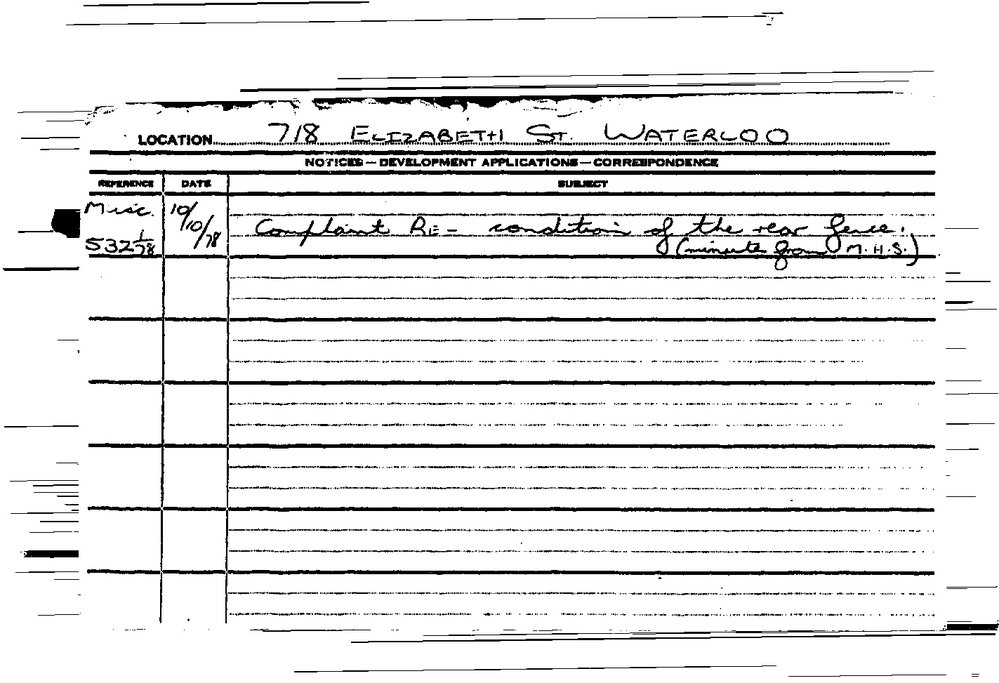 LOCATION 718 ELIZABETH ST. WATERLOO
NOTICES — DEVELOPMENT APPLICATIONS — CORRESPONDENCE
REFERENCE DATE SUBJECT
Misc. 10/10/78 Complaint RE - condition of the rear fence.
532 1/78 (minute from M.H.S.)